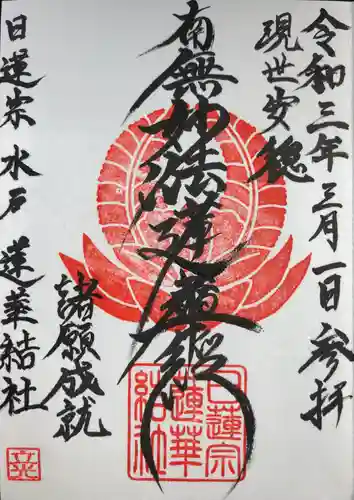 令和三年三月一日参拝
現世安穏
南無妙法蓮華経
諸願成就
日蓮宗水戸蓮華結社
日蓮宗
蓮華
結社